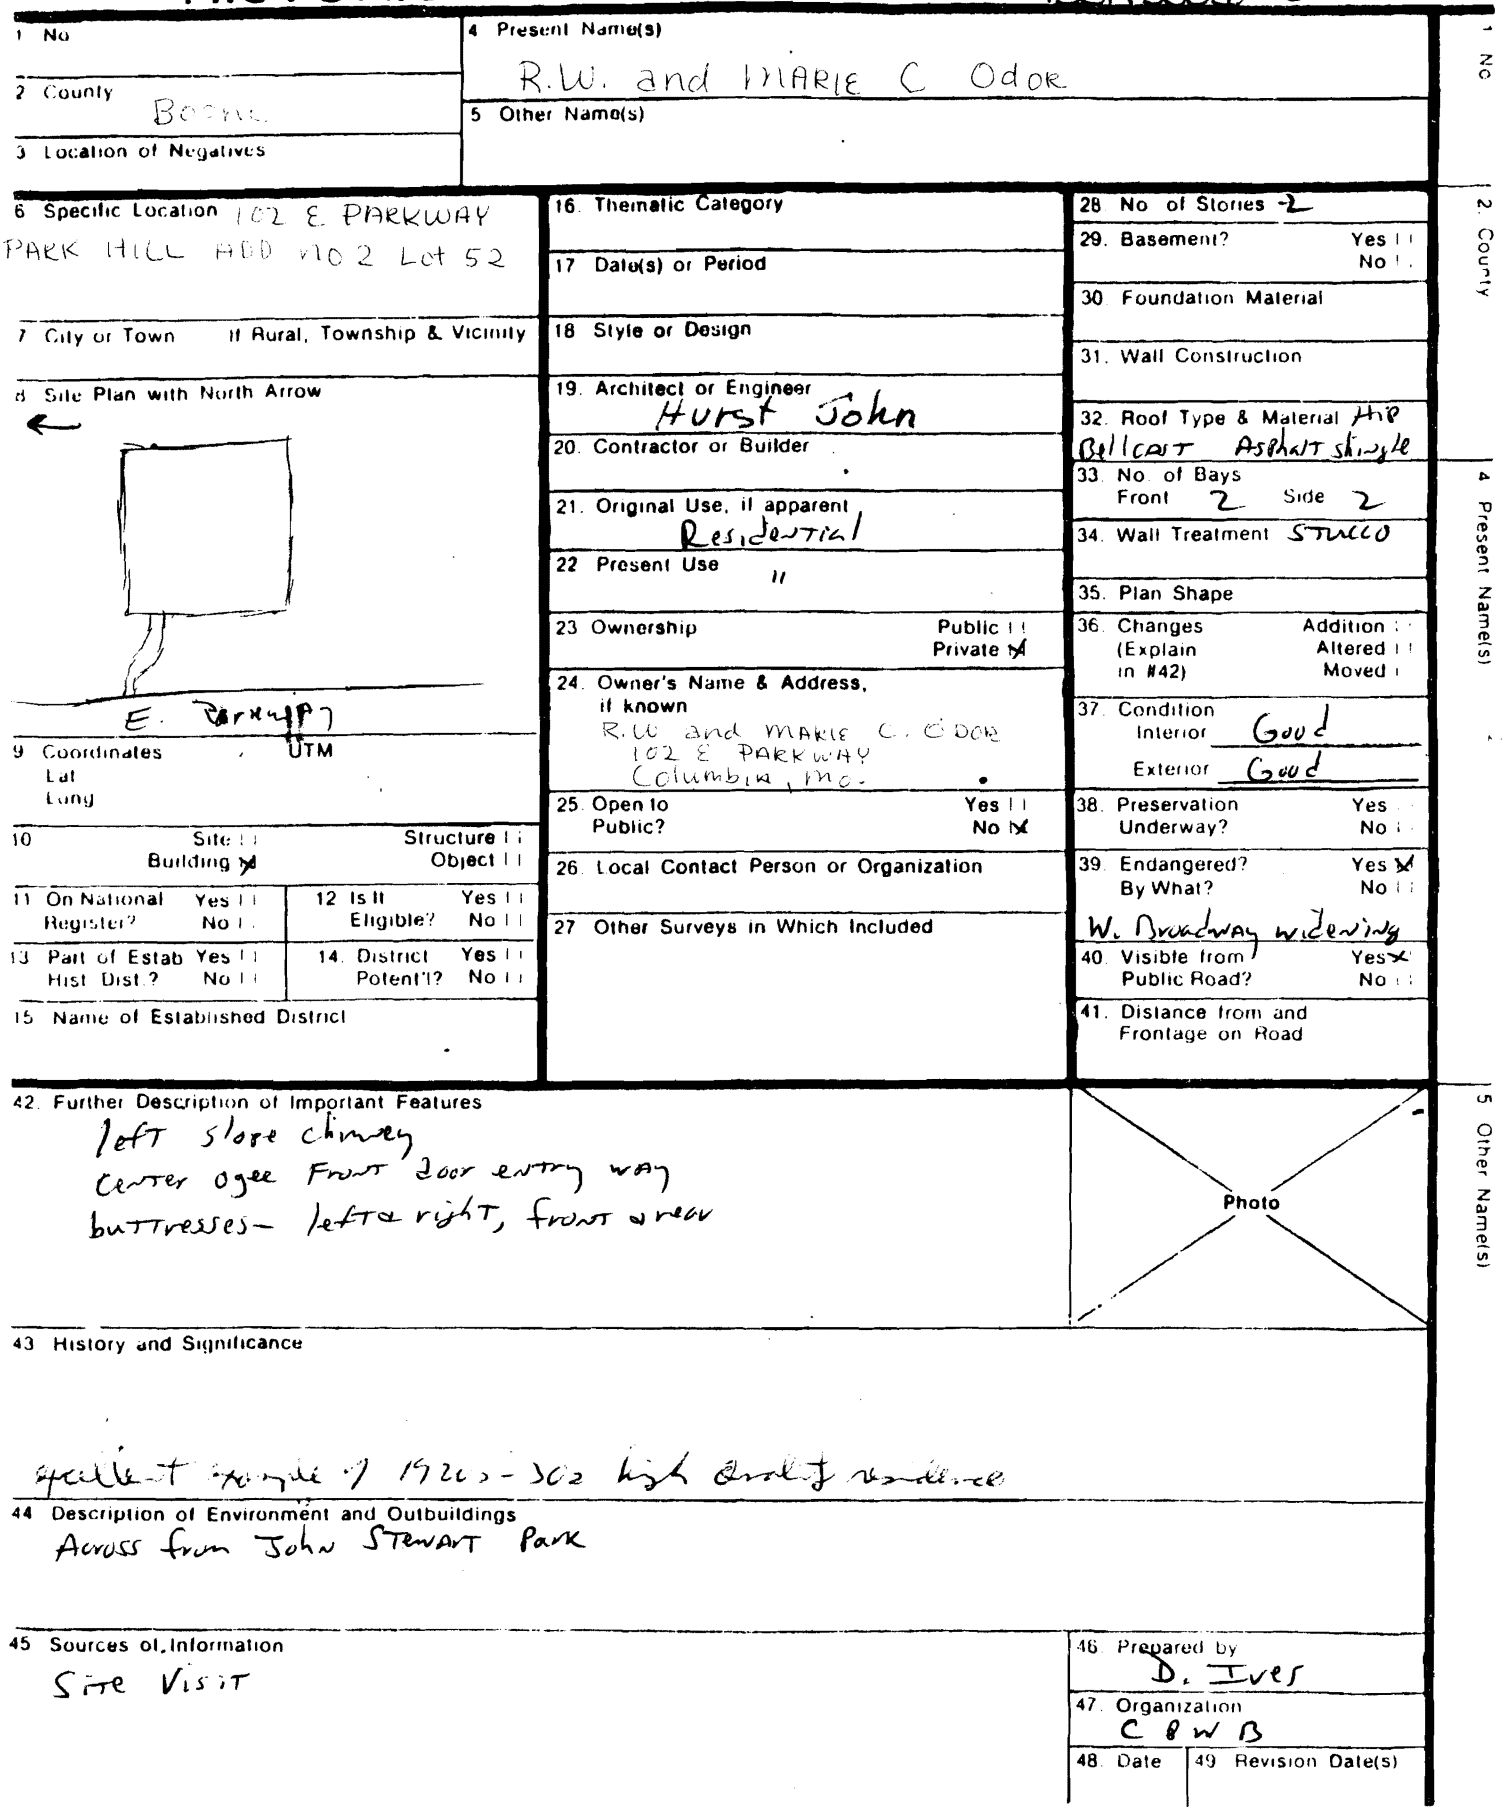 1 No
2 County
Boone
3 Location of Negatives
4 Present Name(s)
R.W. and MARIE C Odor
5 Other Name(s)
6 Specific Location 102 E PARKWAY
PARK HILL ADD no 2 Lot 52
7 City or Town If Rural, Township & Vicinity
8 Site Plan with North Arrow
E. Parkway
9 Coordinates UTM
Lat
Long
10 Site Structure
Building Object
11 On National Yes
Register? No
12 Is It Yes
Eligible? No
13 Part of Estab Yes
Hist Dist.? No
14. District Yes
Potent'l? No
15 Name of Established District
16. Thematic Category
17 Date(s) or Period
18 Style or Design
19. Architect or Engineer
Hurst John
20. Contractor or Builder
21. Original Use, if apparent
Residential
22 Present Use "
23 Ownership Public
Private
24. Owner's Name & Address,
if known
R.W and MARIE C. ODOR
102 E PARKWAY
Columbia, mo.
25. Open to Yes
Public? No
26. Local Contact Person or Organization
27 Other Surveys in Which Included
28 No of Stories 2
29. Basement? Yes
No
30. Foundation Material
31. Wall Construction
32. Roof Type & Material Hip
Bellcast Asphalt shingle
33. No. of Bays
Front 2 Side 2
34. Wall Treatment STUCCO
35. Plan Shape
36. Changes Addition
(Explain Altered
in #42) Moved
37. Condition
Interior Good
Exterior Good
38. Preservation Yes
Underway? No
39. Endangered? Yes
By What? No
W. Broadway widening
40. Visible from Yes
Public Road? No
41. Distance from and
Frontage on Road
42. Further Description of Important Features
left slope chimney
center ogee Front door entry way
buttresses- left & right, front & rear
Photo
43 History and Significance
excellent example of 1920s-30s high quality residence
44 Description of Environment and Outbuildings
Across from John Stewart Park
45 Sources of Information
Site Visit
46. Prepared by
D. Ives
47. Organization
C P W B
48. Date
49 Revision Date(s)
1 No
2. County
4 Present Name(s)
5 Other Name(s)